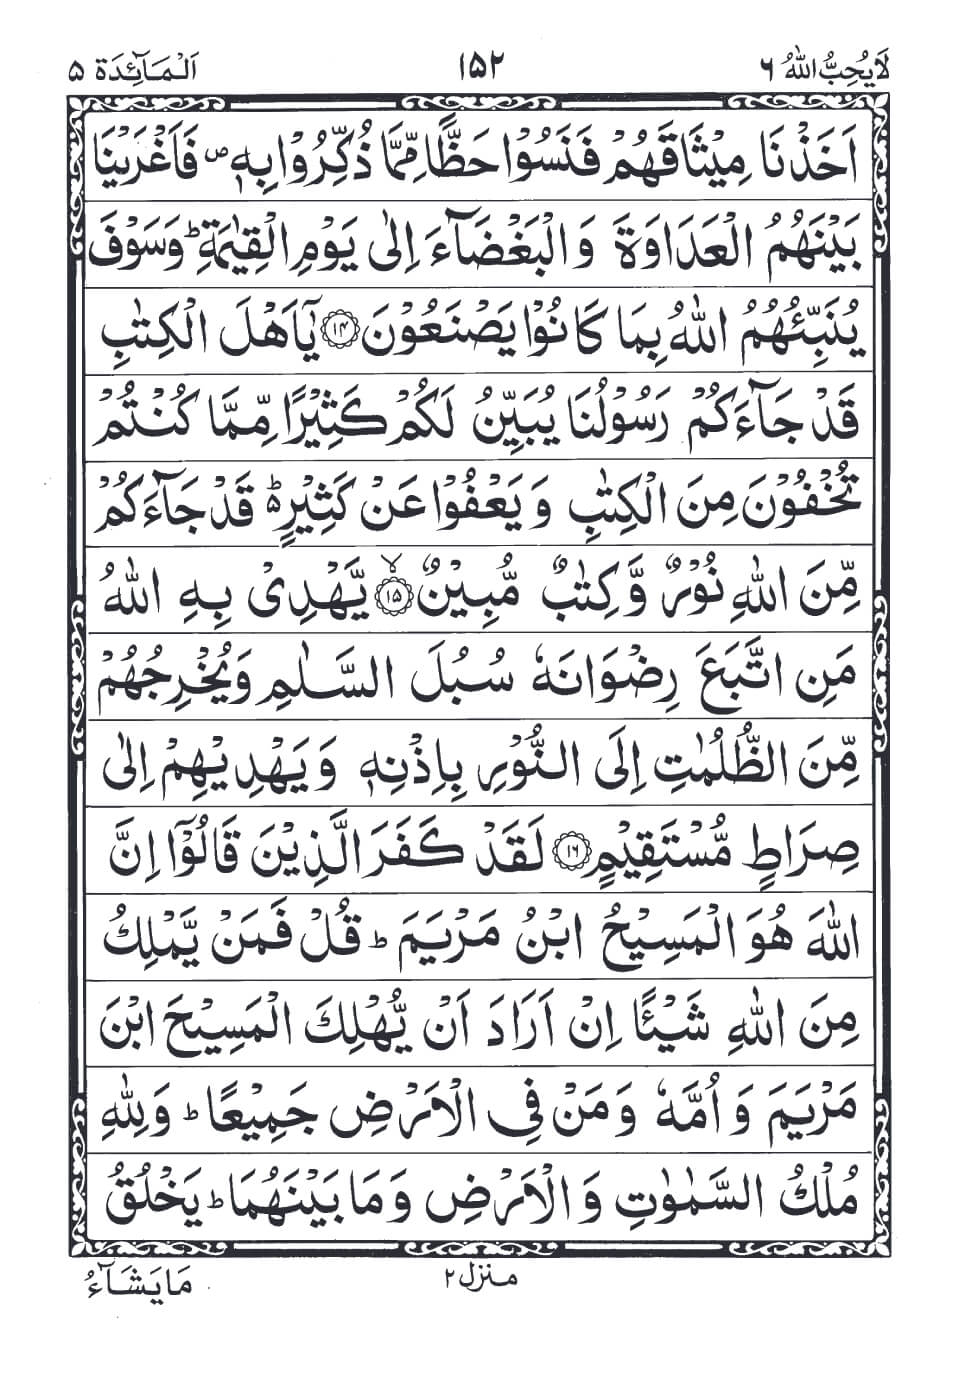 لَا يُحِبُّ اللهُ ٦
١٥٢
اَلْمَآئِدَة ٥
اَخَذْنَا مِيْثَاقَهُمْ فَنَسُوْا حَظًّا مِّمَّا ذُكِّرُوْا بِهٖ ۪ فَاَغْرَيْنَا
بَيْنَهُمُ الْعَدَاوَةَ وَ الْبَغْضَآءَ اِلٰى يَوْمِ الْقِيٰمَةِ ؕ وَ سَوْفَ
يُنَبِّئُهُمُ اللهُ بِمَا كَانُوْا يَصْنَعُوْنَ ﴿١٤﴾ يٰۤاَهْلَ الْكِتٰبِ
قَدْ جَآءَكُمْ رَسُوْلُنَا يُبَيِّنُ لَكُمْ كَثِيْرًا مِّمَّا كُنْتُمْ
تُخْفُوْنَ مِنَ الْكِتٰبِ وَ يَعْفُوْا عَنْ كَثِيْرٍ ۬ؕ قَدْ جَآءَكُمْ
مِّنَ اللهِ نُوْرٌ وَّ كِتٰبٌ مُّبِيْنٌ ﴿١٥﴾ۙ يَّهْدِيْ بِهِ اللهُ
مَنِ اتَّبَعَ رِضْوَانَهٗ سُبُلَ السَّلٰمِ وَ يُخْرِجُهُمْ
مِّنَ الظُّلُمٰتِ اِلَى النُّوْرِ بِاِذْنِهٖ وَ يَهْدِيْهِمْ اِلٰى
صِرَاطٍ مُّسْتَقِيْمٍ ﴿١٦﴾ لَقَدْ كَفَرَ الَّذِيْنَ قَالُوْۤا اِنَّ
اللهَ هُوَ الْمَسِيْحُ ابْنُ مَرْيَمَ ؕ قُلْ فَمَنْ يَّمْلِكُ
مِنَ اللهِ شَيْئًا اِنْ اَرَادَ اَنْ يُّهْلِكَ الْمَسِيْحَ ابْنَ
مَرْيَمَ وَ اُمَّهٗ وَ مَنْ فِي الْاَرْضِ جَمِيْعًا ؕ وَ لِلّٰهِ
مُلْكُ السَّمٰوٰتِ وَ الْاَرْضِ وَ مَا بَيْنَهُمَا ؕ يَخْلُقُ
منزل ٢
مَا يَشَآءُ